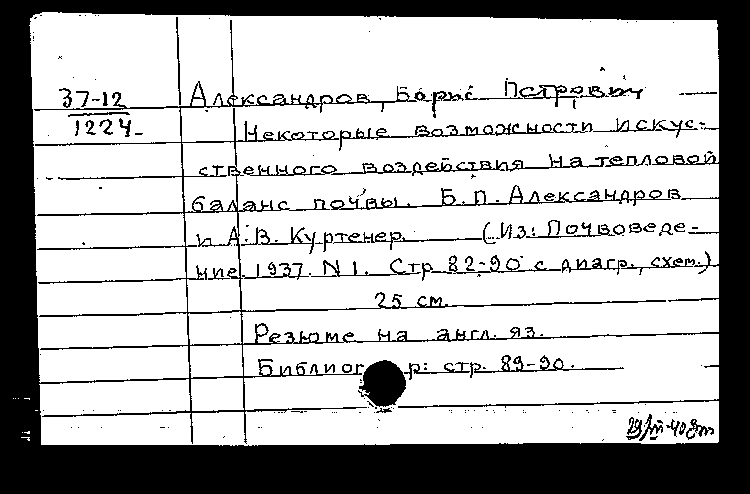 37-12
1224
Александров, Борис Петрович
Некоторые возможности искус-
ственного воздействия на тепловой
баланс почвы. Б.П. Александров
и А.В. Куртенер. (Из: Почвоведе-
ние. 1937. N 1. Стр 82-90 с диагр., схем.)
25 см.
Резюме на англ. яз.
Библиог р: стр. 89-90.